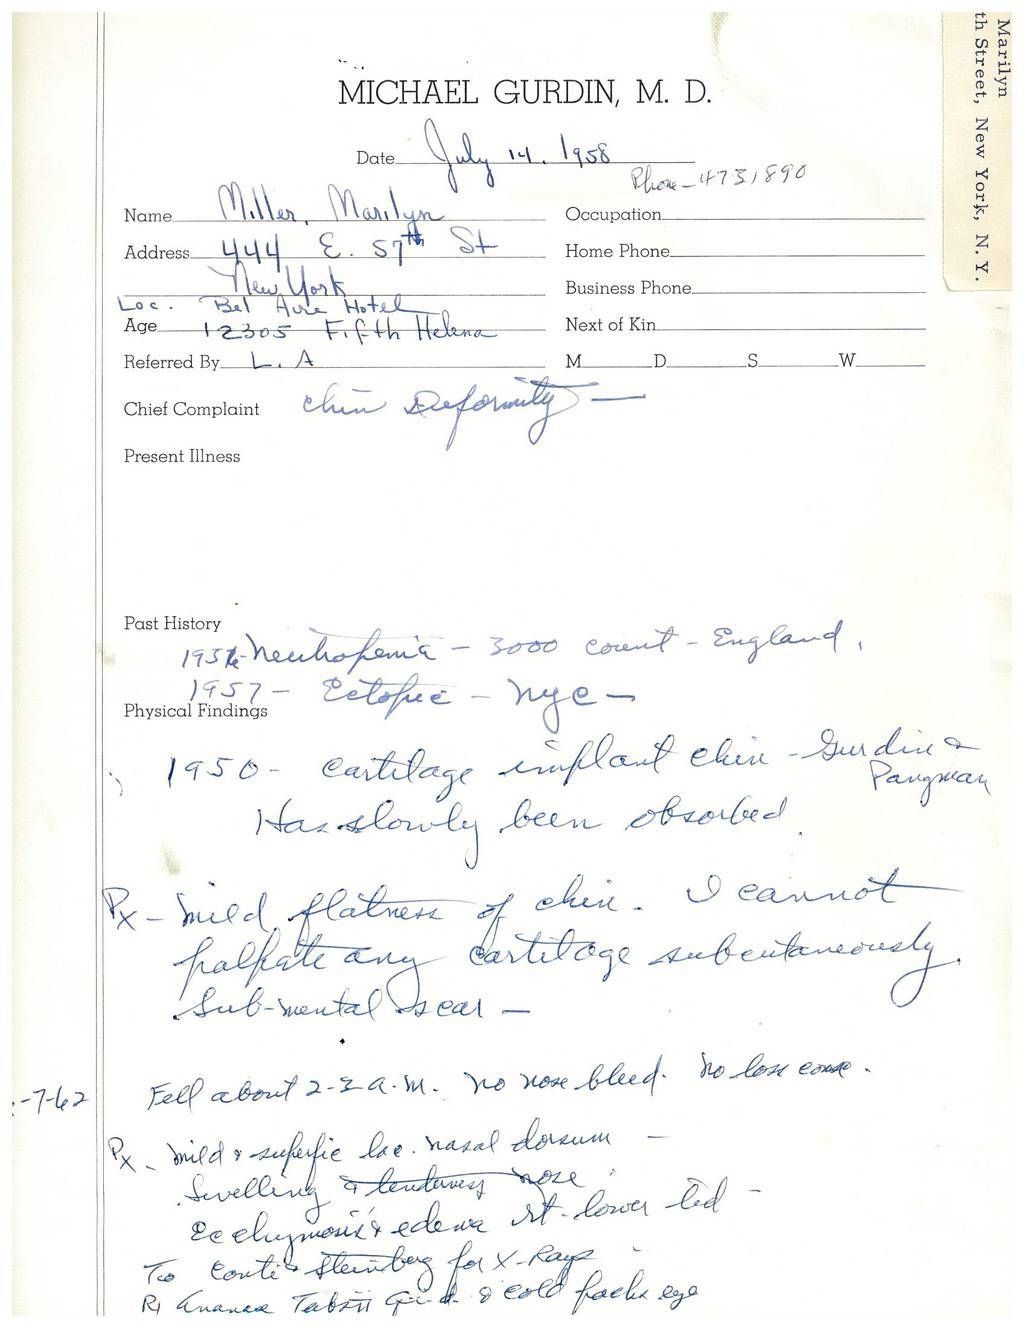 Marilyn
th Street, New York, N. Y.
MICHAEL GURDIN, M. D.
Date July 14, 1958
Phone - 4731890
Name Miller, Marilyn
Occupation
Address 444 E. 57th St
Home Phone
New York
Business Phone
Loc. Bel Aire Hotel
Age 12305 Fifth Helena
Next of Kin
Referred By L. A
M D S W
Chief Complaint Chin Deformity —
Present Illness
Past History
1956 - Neutropenia - 3000 count - England.
1957 - Ectopic - NYC -
Physical Findings
1950 - cartilage implant chin - Gurdin &
Pangman
Has slowly been absorbed.
Px - Mild flatness of chin. I cannot
palpate any cartilage subcutaneously.
Sub-mental scar -
-7-62 Fell about 2-3 a.m. No nose bleed. No loss consc.
Px - mild & superfic lac. nasal dorsum -
Swelling & tenderness nose
Ecchymosis & edema rt. lower lid -
To Conti & Steinberg for X-Rays
Rx Ananase Tabs II q.i.d. & cold packs eye